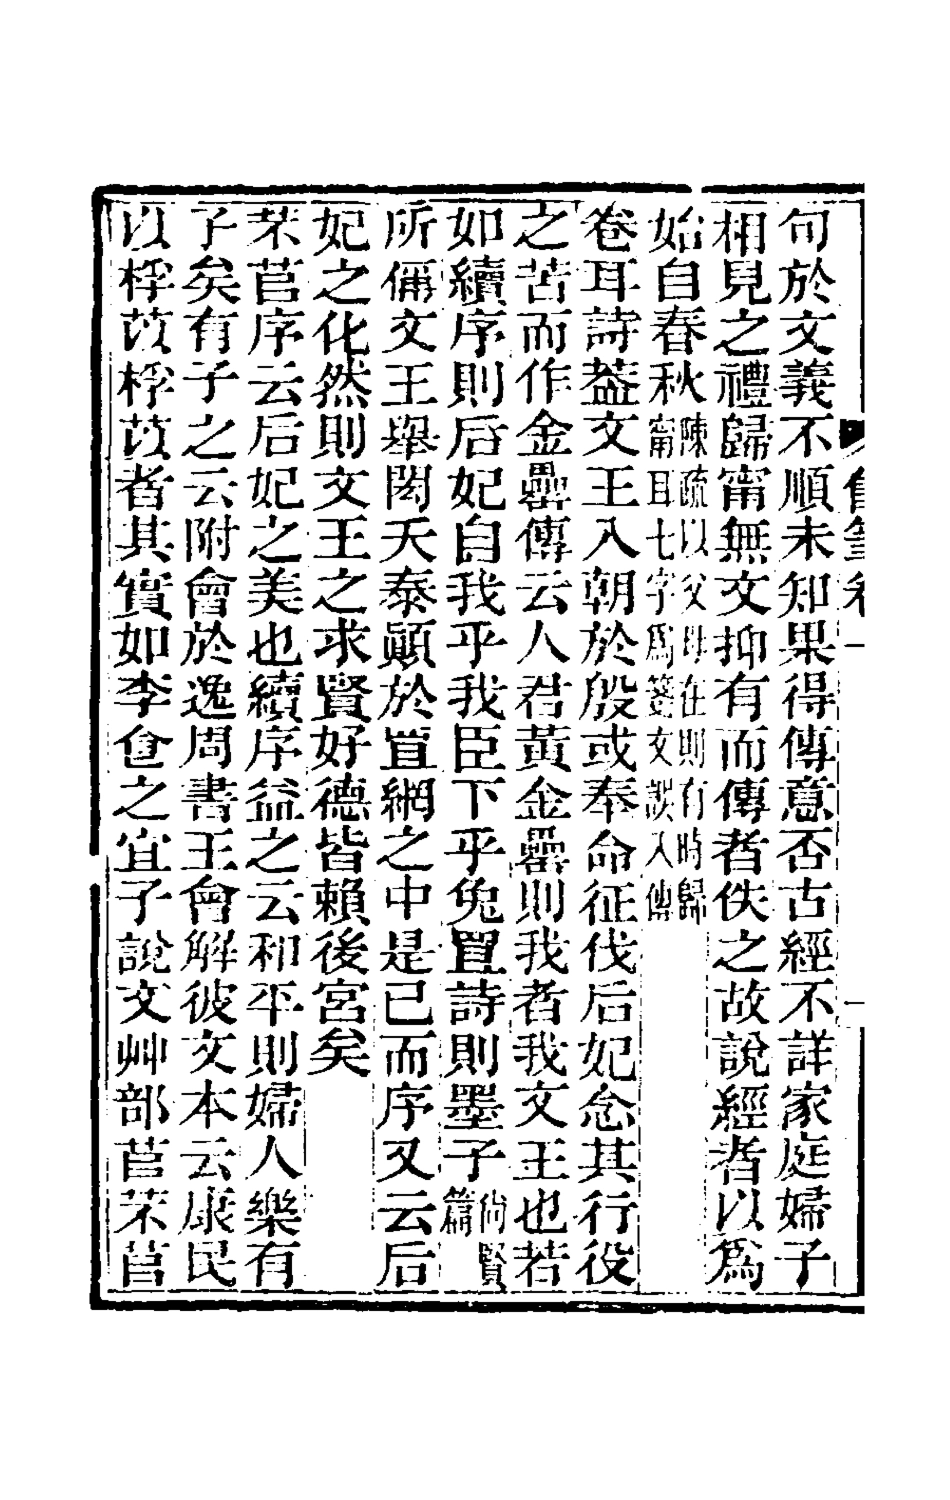 句於文義不順未知果得傳意否古經不詳家庭婦子
相見之禮歸甯無文抑有而傳者佚之故說經者以爲
始自春秋陳疏以父母在則有時歸甯耳七字爲箋文誤入傳
卷耳詩葢文王入朝於殷或奉命征伐后妃念其行役
之苦而作金罍傳云人君黃金罍則我者我文王也若
如續序則后妃自我乎我臣下乎兔罝詩則墨子尚賢篇
所偁文王舉閎夭泰顚於罝網之中是已而序又云后
妃之化然則文王之求賢好德皆賴後宮矣
芣苢序云后妃之美也續序益之云和平則婦人樂有
子矣有子之云附會於逸周書王會解彼文本云康民
以桴苡桴苡者其實如李食之宜子說文艸部苢芣苢